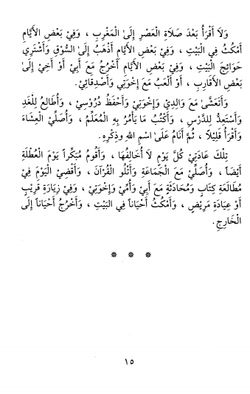 وَلَا أَقْرَأُ بَعْدَ صَلَاةِ الْعَصْرِ إِلَى الْمَغْرِبِ ، وَفِيْ بَعْضِ الْأَيَّامِ
أَمْكُثُ فِي الْبَيْتِ ، وَفِيْ بَعْضِ الْأَيَّامِ أَذْهَبُ إِلَى السُّوْقِ وَأَشْتَرِي
حَوَائِجَ الْبَيْتِ ، وَفِيْ بَعْضِ الْأَيَّامِ أَخْرُجُ مَعَ أَبِيْ أَوْ أَخِيْ إِلَى
بَعْضِ الْأَقَارِبِ ، أَوْ أَلْعَبُ مَعَ إِخْوَتِيْ وَأَصْدِقَائِيْ.
وَأَتَعَشَّى مَعَ وَالِدِيْ وَإِخْوَتِيْ وَأَحْفَظُ دُرُوْسِيْ ، وَأُطَالِعُ لِلْغَدِ
وَأَسْتَعِدُّ لِلدَّرْسِ ، وَأَكْتُبُ مَا يَأْمُرُ بِهِ الْمُعَلِّمُ ، وَأُصَلِّي الْعِشَاءَ
وَأَقْرَأُ قَلِيْلًا ، ثُمَّ أَنَامُ عَلَى اسْمِ اللَّهِ وَذِكْرِهِ.
تِلْكَ عَادَتِيْ كُلَّ يَوْمٍ لَا أُخَالِفُهَا ، وَأَقُومُ مُبَكِّراً يَوْمَ الْعُطْلَةِ
أَيْضاً ، وَأُصَلِّيْ مَعَ الْجَمَاعَةِ وَأَتْلُو الْقُرْآنَ ، وَأَقْضِي الْيَوْمَ فِيْ
مُطَالَعَةِ كِتَابٍ وَمُحَادَثَةٍ مَعَ أَبِيْ وَأُمِّيْ وَإِخْوَتِيْ ، وَفِيْ زِيَارَةِ قَرِيْبٍ
أَوْ عِيَادَةِ مَرِيْضٍ ، وَأَمْكُثُ أَحْيَاناً فِي الْبَيْتِ ، وَأَخْرُجُ أَحْيَاناً إِلَى
الْخَارِجِ.
* * *
١٥